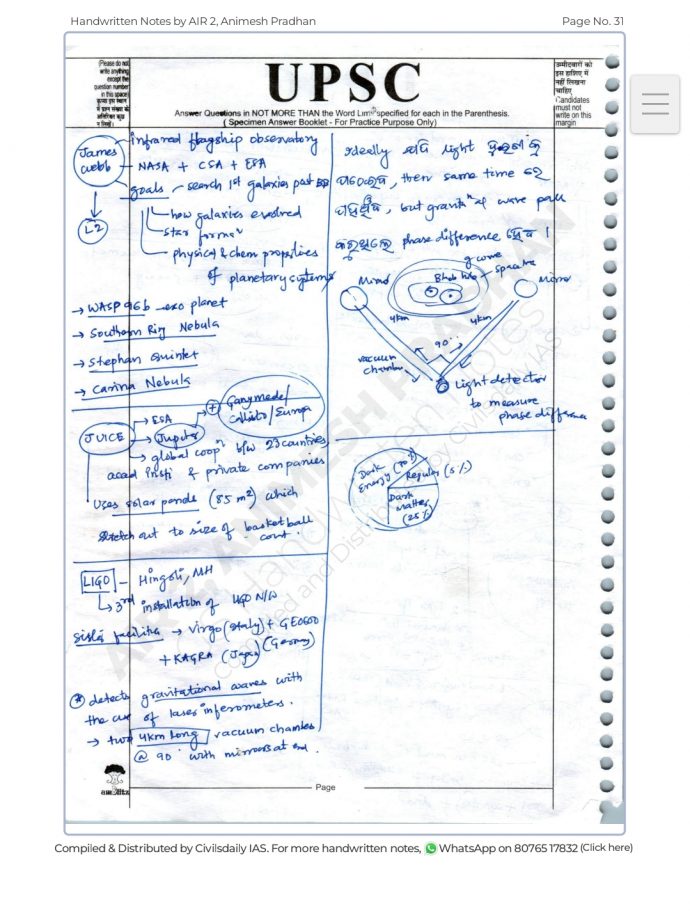 Handwritten Notes by AIR 2, Animesh Pradhan
Page No. 31
(Please do not
write anything
except the
question number
in this space)
UPSC
Answer Questions in NOT MORE THAN the Word Limit specified for each in the Parenthesis.
( Specimen Answer Booklet - For Practice Purpose Only)
उम्मीदवारों को
इस हाशिए में
नहीं लिखना
चाहिए
Candidates
must not
write on this
margin
James
Webb
L2
infrared flagship observatory
NASA + CSA + ESA
goals - search 1st galaxies post BB
how galaxies evolved
star formⁿ
physical & chem properties
of planetary systems
→ WASP 96b - exo planet
→ Southern Ring Nebula
→ Stephan Quintet
→ Carina Nebula
JUICE
→ ESA
→ Jupiter → + Ganymede/
Callisto/Europa
→ global coopⁿ b/w 23 countries
acad insti & private companies
Uses solar panels (85 m²) which
stretch out to size of basketball
court.
LIGO - Hingoli, MH
→ 3rd installation of LIGO N/W
sister facilities → Virgo (Italy) + GEO600
(Germany)
+ KAGRA (Japan)
* detects gravitational waves with
the use of laser inferometers.
→ two 4km long vacuum chambers
@ 90° with mirrors at end.
Ideally light
, then same time
, but gravitⁿal wave
phase difference
Mirror
Mirror
Black hole
4km
4km
90°
vacuum
chamber
Light detector
to measure
phase difference
Dark
Energy (70%)
Regular (5%)
Dark
Matter
(25%)
Page
Compiled & Distributed by Civilsdaily IAS. For more handwritten notes, WhatsApp on 80765 17832 (Click here)